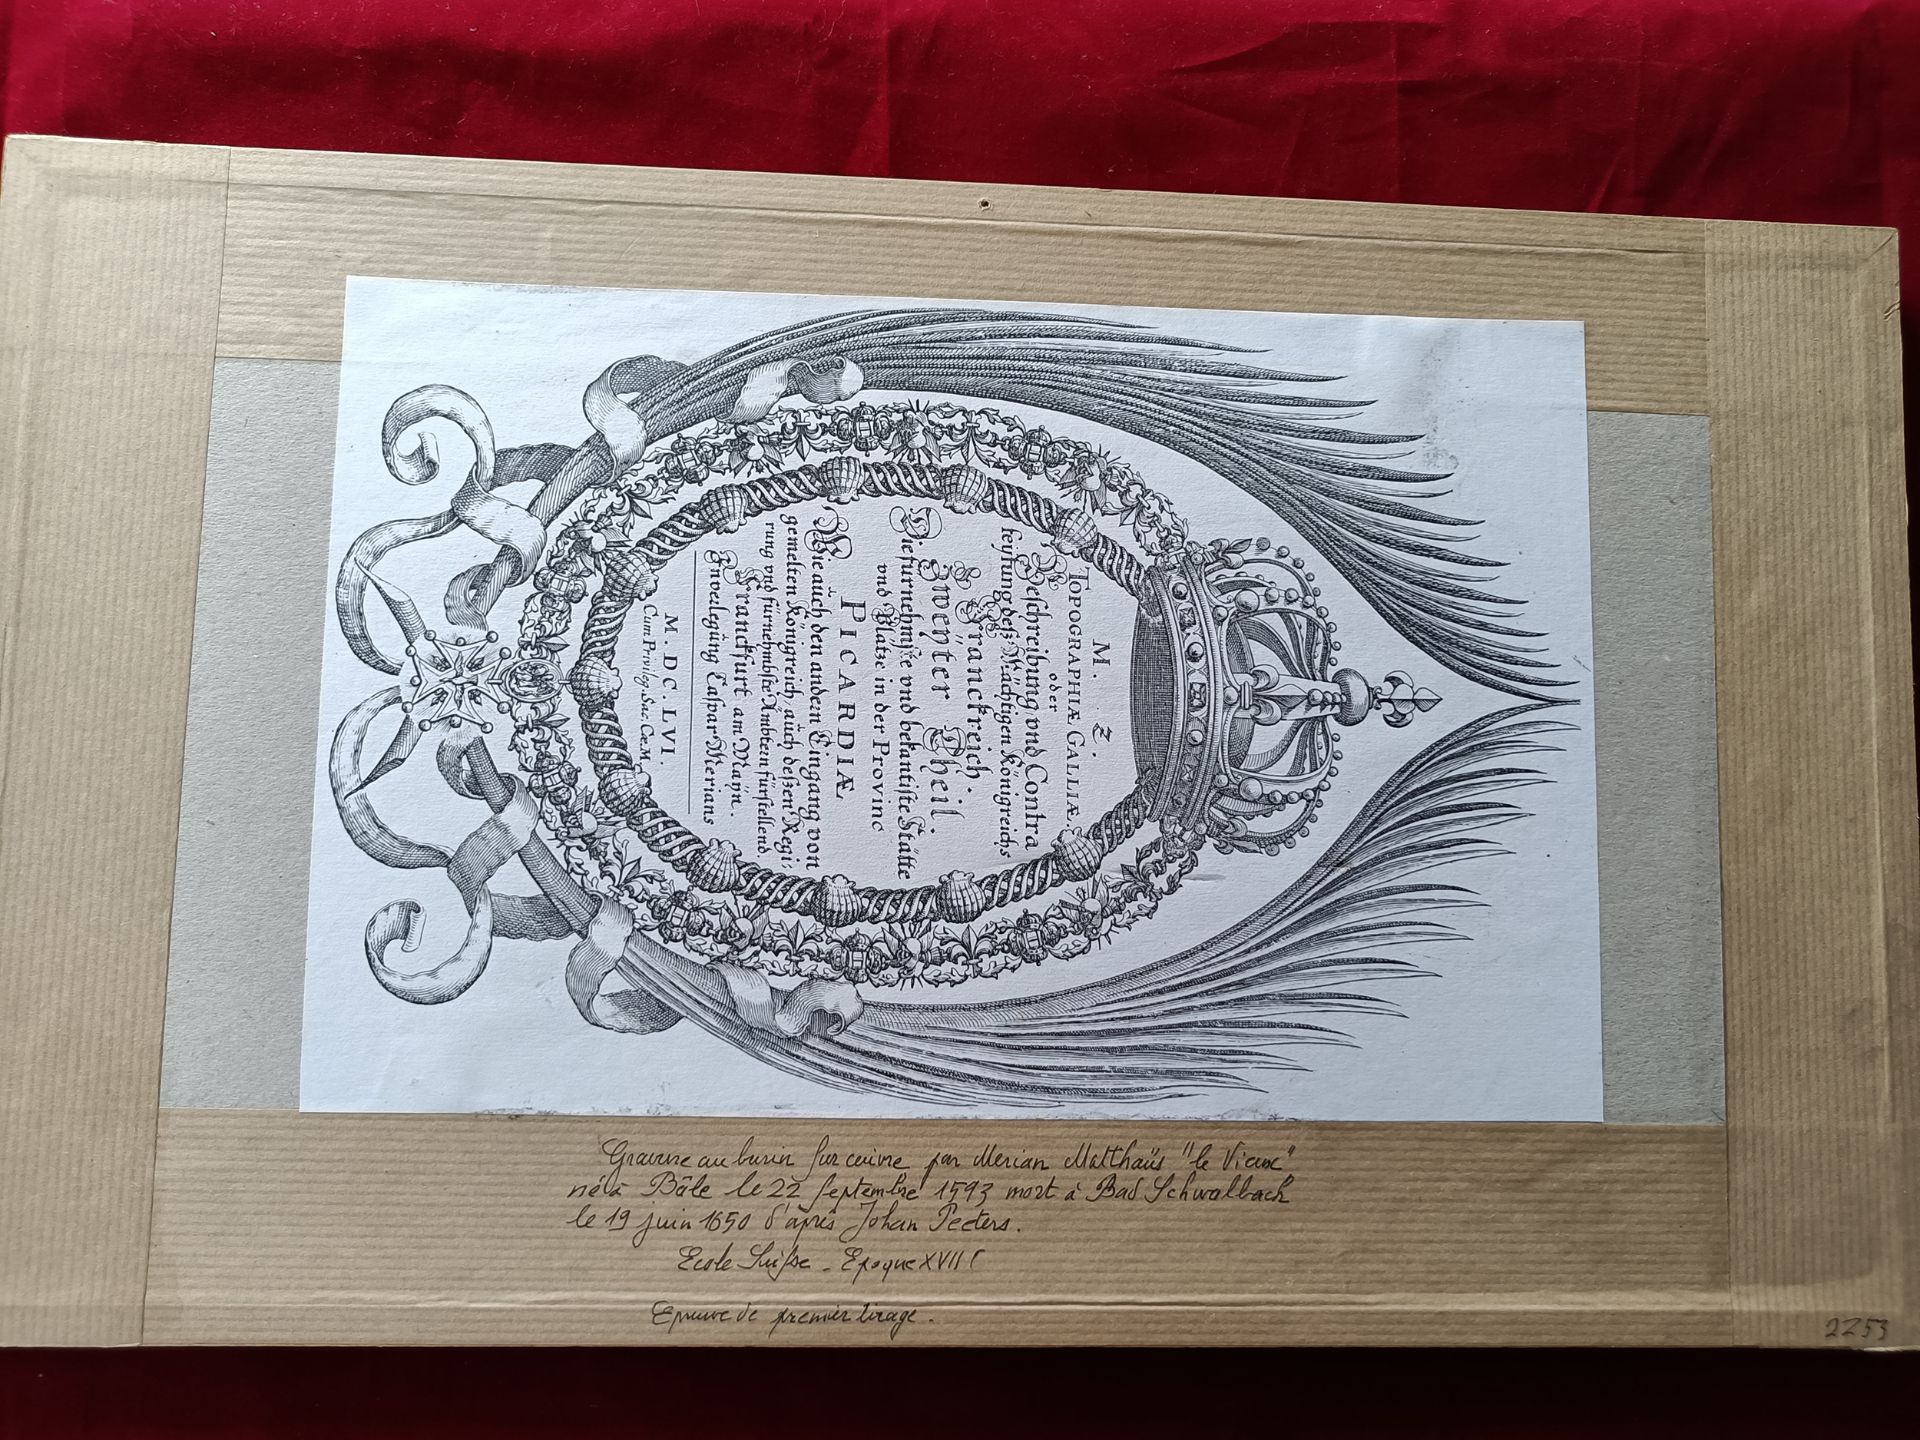 M. Z.
TOPOGRAPHIÆ GALLIÆ.
oder
Beschreibung vnd Contra
feistung deß Mächtigen Königreichs
Franckreich.
Zweÿter Theil.
Die furnehmste vnd bekantiste Stätte
vnd Plätze in der Provinc
PICARDIÆ
Wie auch den andern Eingang von
gemelten Königreich, auch deßen Regi-
rung vnd fürnehmbste Ämbtern fürstellend.
Franckfurt am Maÿn.
In Caspar Merians
M. DC. LVI.
Cum Privileg. Sac. Cæ. M.
Gravure au burin sur cuivre par Merian Matthaüs "le Vieux"
né à Bâle le 22 septembre 1593 mort à Bad Schwalbach
le 19 juin 1650 d'après Johan Peeters.
Ecole Suisse - Epoque XVII
Epreuve de premier tirage.
2253